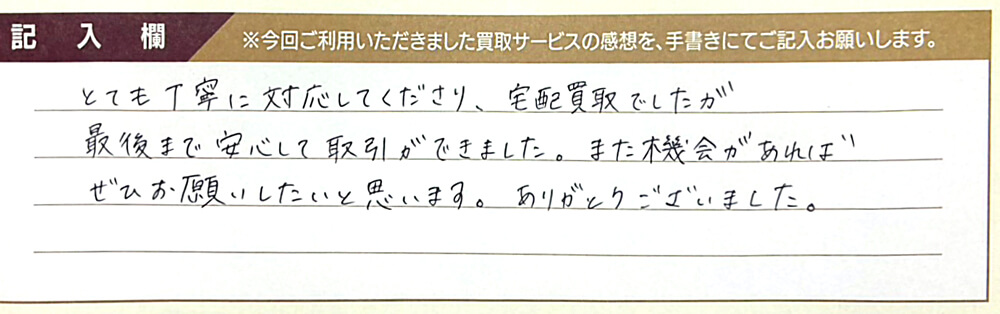 記入欄
※今回ご利用いただきました買取サービスの感想を、手書きにてご記入お願いします。
とても丁寧に対応してくださり、宅配買取でしたが
最後まで安心して取引ができました。また機会があれば
ぜひお願いしたいと思います。ありがとうございました。